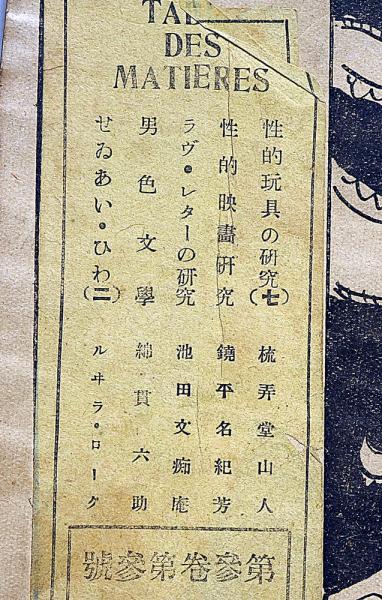 DES
MATIERES
性的玩具の研究(七) 梳弄堂山人
性的映畫研究 鐃平名紀芳
ラヴ・レターの研究 池田文痴庵
男色文學 綿貫六助
せゐあい・ひわ(二) ルヰラ・ローク
第參卷第參號